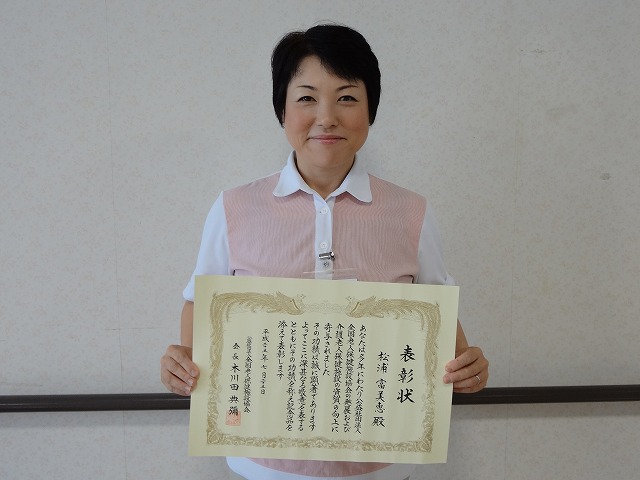 表彰状
松浦 富美惠 殿
あなたは多年にわたり公益社団法人
全国老人保健施設協会の発展および
介護老人保健施設の資質の向上に
寄与されました
その功績は誠に顕著であります
よってここに深甚なる敬意を表する
とともにその功績を称え記念品を
添えて表彰します
平成二十五年七月二十五日
公益社団法人全国老人保健施設協会
会長 木川田 典彌